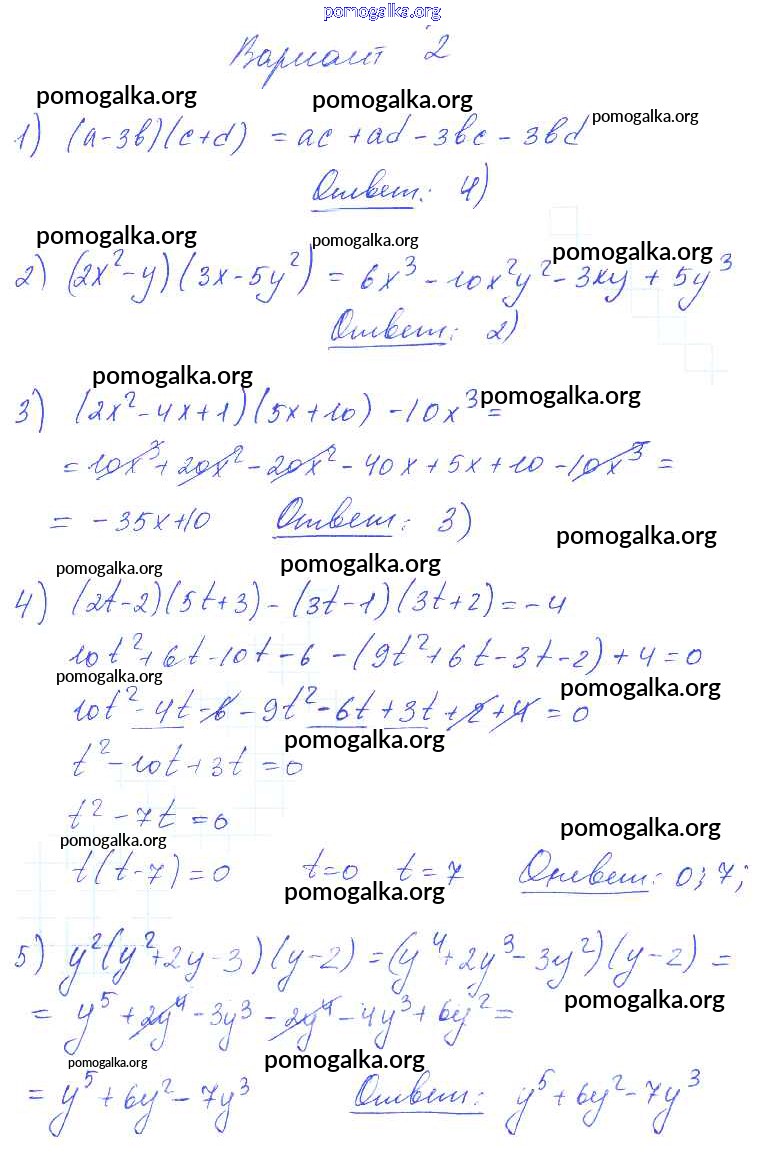 pomogalka.org
Вариант 2
pomogalka.org pomogalka.org pomogalka.org
1) (a-3b)(c+d) = ac + ad - 3bc - 3bd
Ответ: 4)
pomogalka.org pomogalka.org pomogalka.org
2) (2x² - y)(3x - 5y²) = 6x³ - 10x²y² - 3xy + 5y³
Ответ: 2)
pomogalka.org pomogalka.org
3) (2x² - 4x + 1)(5x + 10) - 10x³ =
= 10x³ + 20x² - 20x² - 40x + 5x + 10 - 10x³ =
= -35x + 10 Ответ: 3)
pomogalka.org
pomogalka.org pomogalka.org
4) (2t-2)(5t+3) - (3t-1)(3t+2) = -4
10t² + 6t - 10t - 6 - (9t² + 6t - 3t - 2) + 4 = 0
pomogalka.org pomogalka.org
10t² - 4t - 6 - 9t² - 6t + 3t + 2 + 4 = 0
pomogalka.org
t² - 10t + 3t = 0
t² - 7t = 0
pomogalka.org pomogalka.org
t(t-7) = 0 t=0 t=7 Ответ: 0; 7;
pomogalka.org
5) y²(y² + 2y - 3)(y-2) = (y⁴ + 2y³ - 3y²)(y-2) =
pomogalka.org
= y⁵ + 2y⁴ - 3y³ - 2y⁴ - 4y³ + 6y² =
pomogalka.org pomogalka.org
= y⁵ + 6y² - 7y³ Ответ: y⁵ + 6y² - 7y³